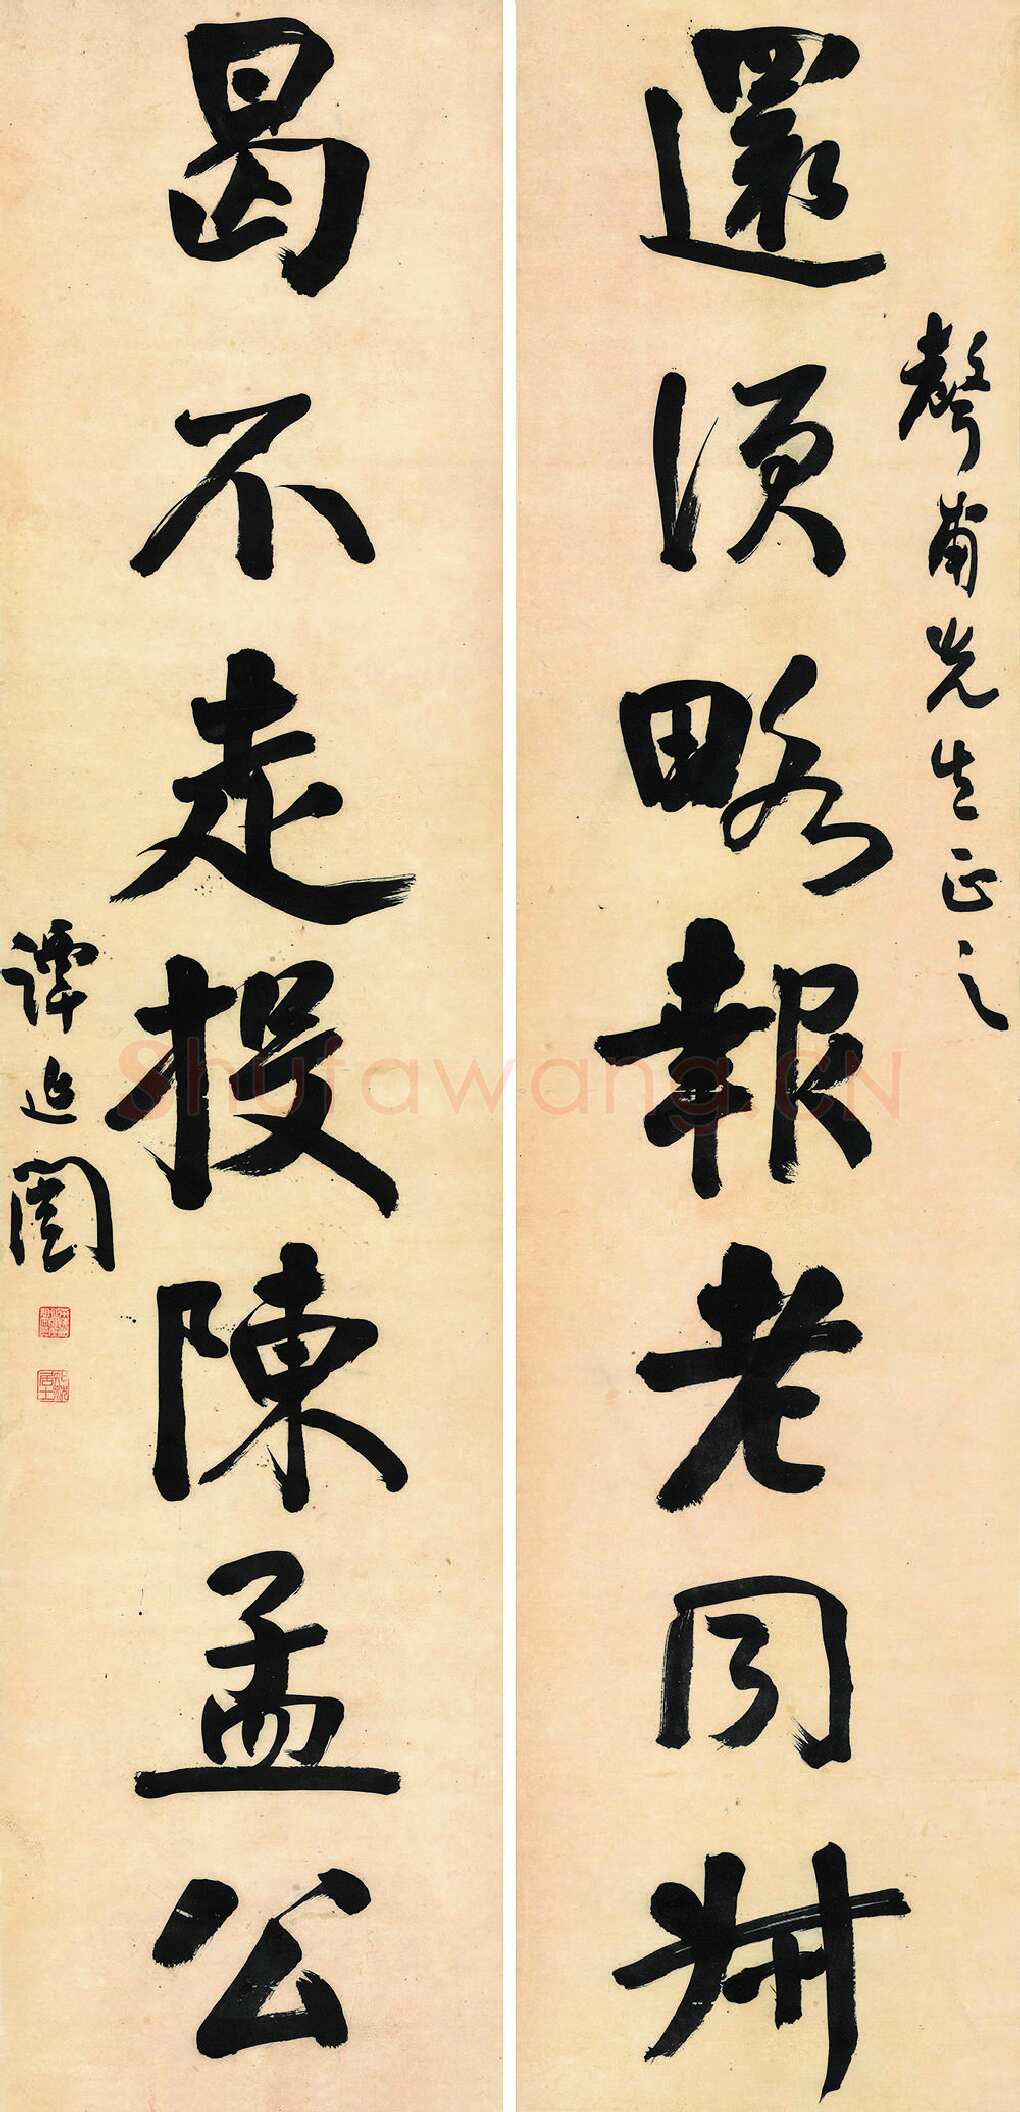 還須略報老同
聲甫先生正之
曷不走投陳孟公
譚延闓
Shufawang.CN